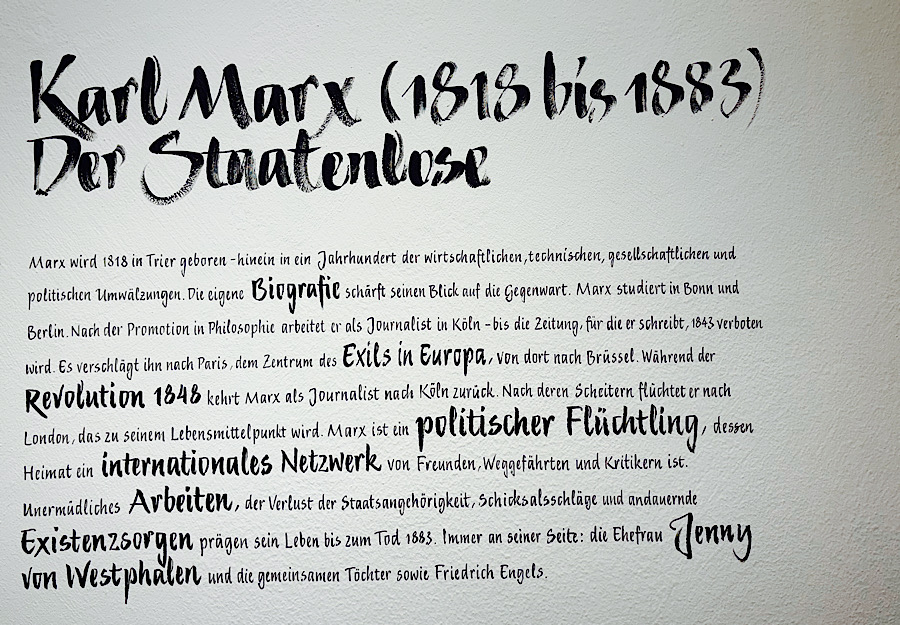 Karl Marx (1818 bis 1883)
Der Staatenlose
Marx wird 1818 in Trier geboren - hinein in ein Jahrhundert der wirtschaftlichen, technischen, gesellschaftlichen und
politischen Umwälzungen. Die eigene Biografie schärft seinen Blick auf die Gegenwart. Marx studiert in Bonn und
Berlin. Nach der Promotion in Philosophie arbeitet er als Journalist in Köln - bis die Zeitung, für die er schreibt, 1843 verboten
wird. Es verschlägt ihn nach Paris, dem Zentrum des Exils in Europa, von dort nach Brüssel. Während der
Revolution 1848 kehrt Marx als Journalist nach Köln zurück. Nach deren Scheitern flüchtet er nach
London, das zu seinem Lebensmittelpunkt wird. Marx ist ein politischer Flüchtling, dessen
Heimat ein internationales Netzwerk von Freunden, Weggefährten und Kritikern ist.
Unermüdliches Arbeiten, der Verlust der Staatsangehörigkeit, Schicksalsschläge und andauernde
Existenzsorgen prägen sein Leben bis zum Tod 1883. Immer an seiner Seite: die Ehefrau Jenny
von Westphalen und die gemeinsamen Töchter sowie Friedrich Engels.